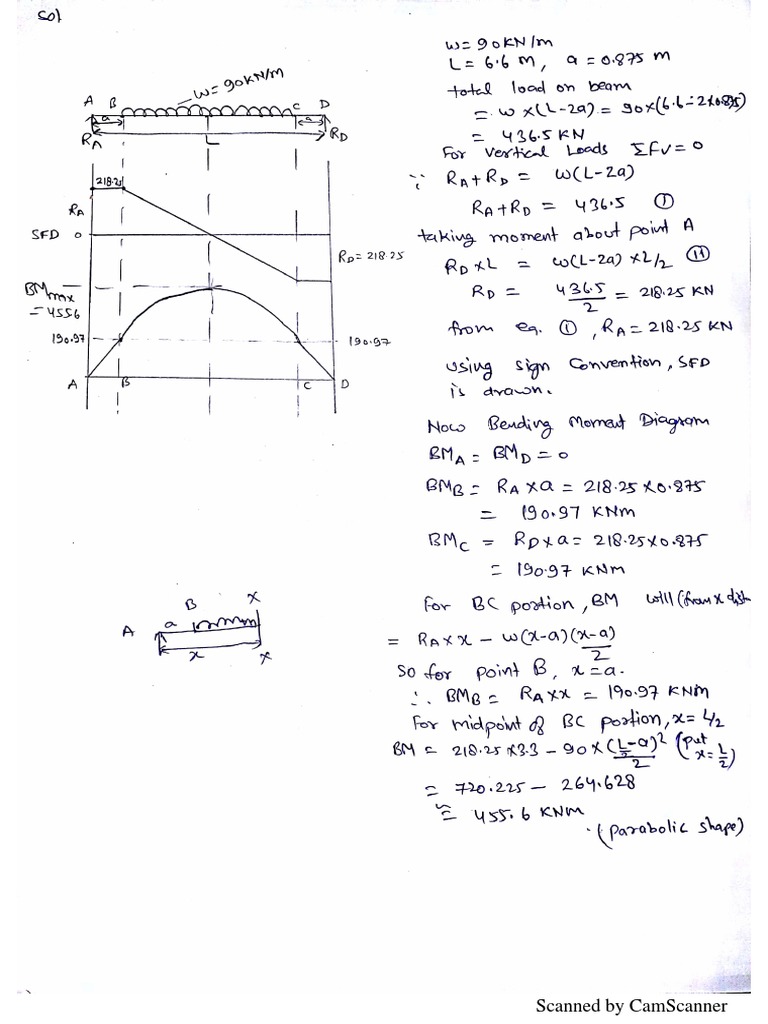 Sol
w = 90KN/m
A B C D
a a
RA L RD
218.25
RA
SFD 0
RD = 218.25
BMmax
= 4556
190.97 190.97
A B C D
B X
A a
x X
w = 90KN/m
L = 6.6 m, a = 0.875 m
total load on beam
= w x (L-2a) = 90x(6.6-2x0.875)
= 436.5 KN
For vertical Loads ΣFv = 0
∵ RA + RD = w(L-2a)
RA + RD = 436.5 ①
taking moment about point A
RD x L = w(L-2a) x L/2 ⑪
RD = 436.5/2 = 218.25 KN
from eq. ①, RA = 218.25 KN
using sign Convention, SFD
is drawn.
Now Bending Moment Diagram
BMA = BMD = 0
BMB = RA x a = 218.25 x 0.875
= 190.97 KNm
BMC = RD x a = 218.25 x 0.875
= 190.97 KNm
For BC portion, BM will (from x dist
= RA x x - w(x-a)(x-a)/2
So for point B, x = a.
∴ BMB = RA x x = 190.97 KNm
For midpoint of BC portion, x = L/2
BM = 218.25 x 3.3 - 90 x (L/2-a)²/2 (put x = L/2)
= 720.225 - 264.628
≈ 455.6 KNm
(parabolic shape)
Scanned by CamScanner